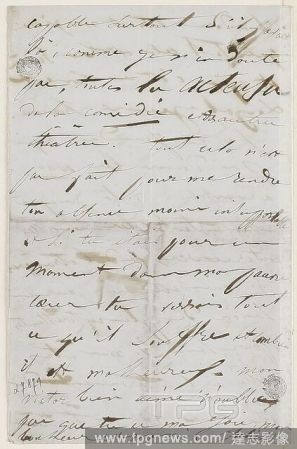 capable surtout s'il
là, comme je n'en doute
pas, toutes les acteurs
de la comédie et autres
théâtres. tout cela n'est
pas fait pour me rendre
ton absence moins insupportable
si tu étais pour un
moment dans mon pauvre
cœur tu verrais tout
ce qu'il souffre et combien
il est malheureux mon
Victor bien aimé n'oublie
pas que tu es ma joie, mon
bonheur
TPG
www.tpgnews.com / 達志影像